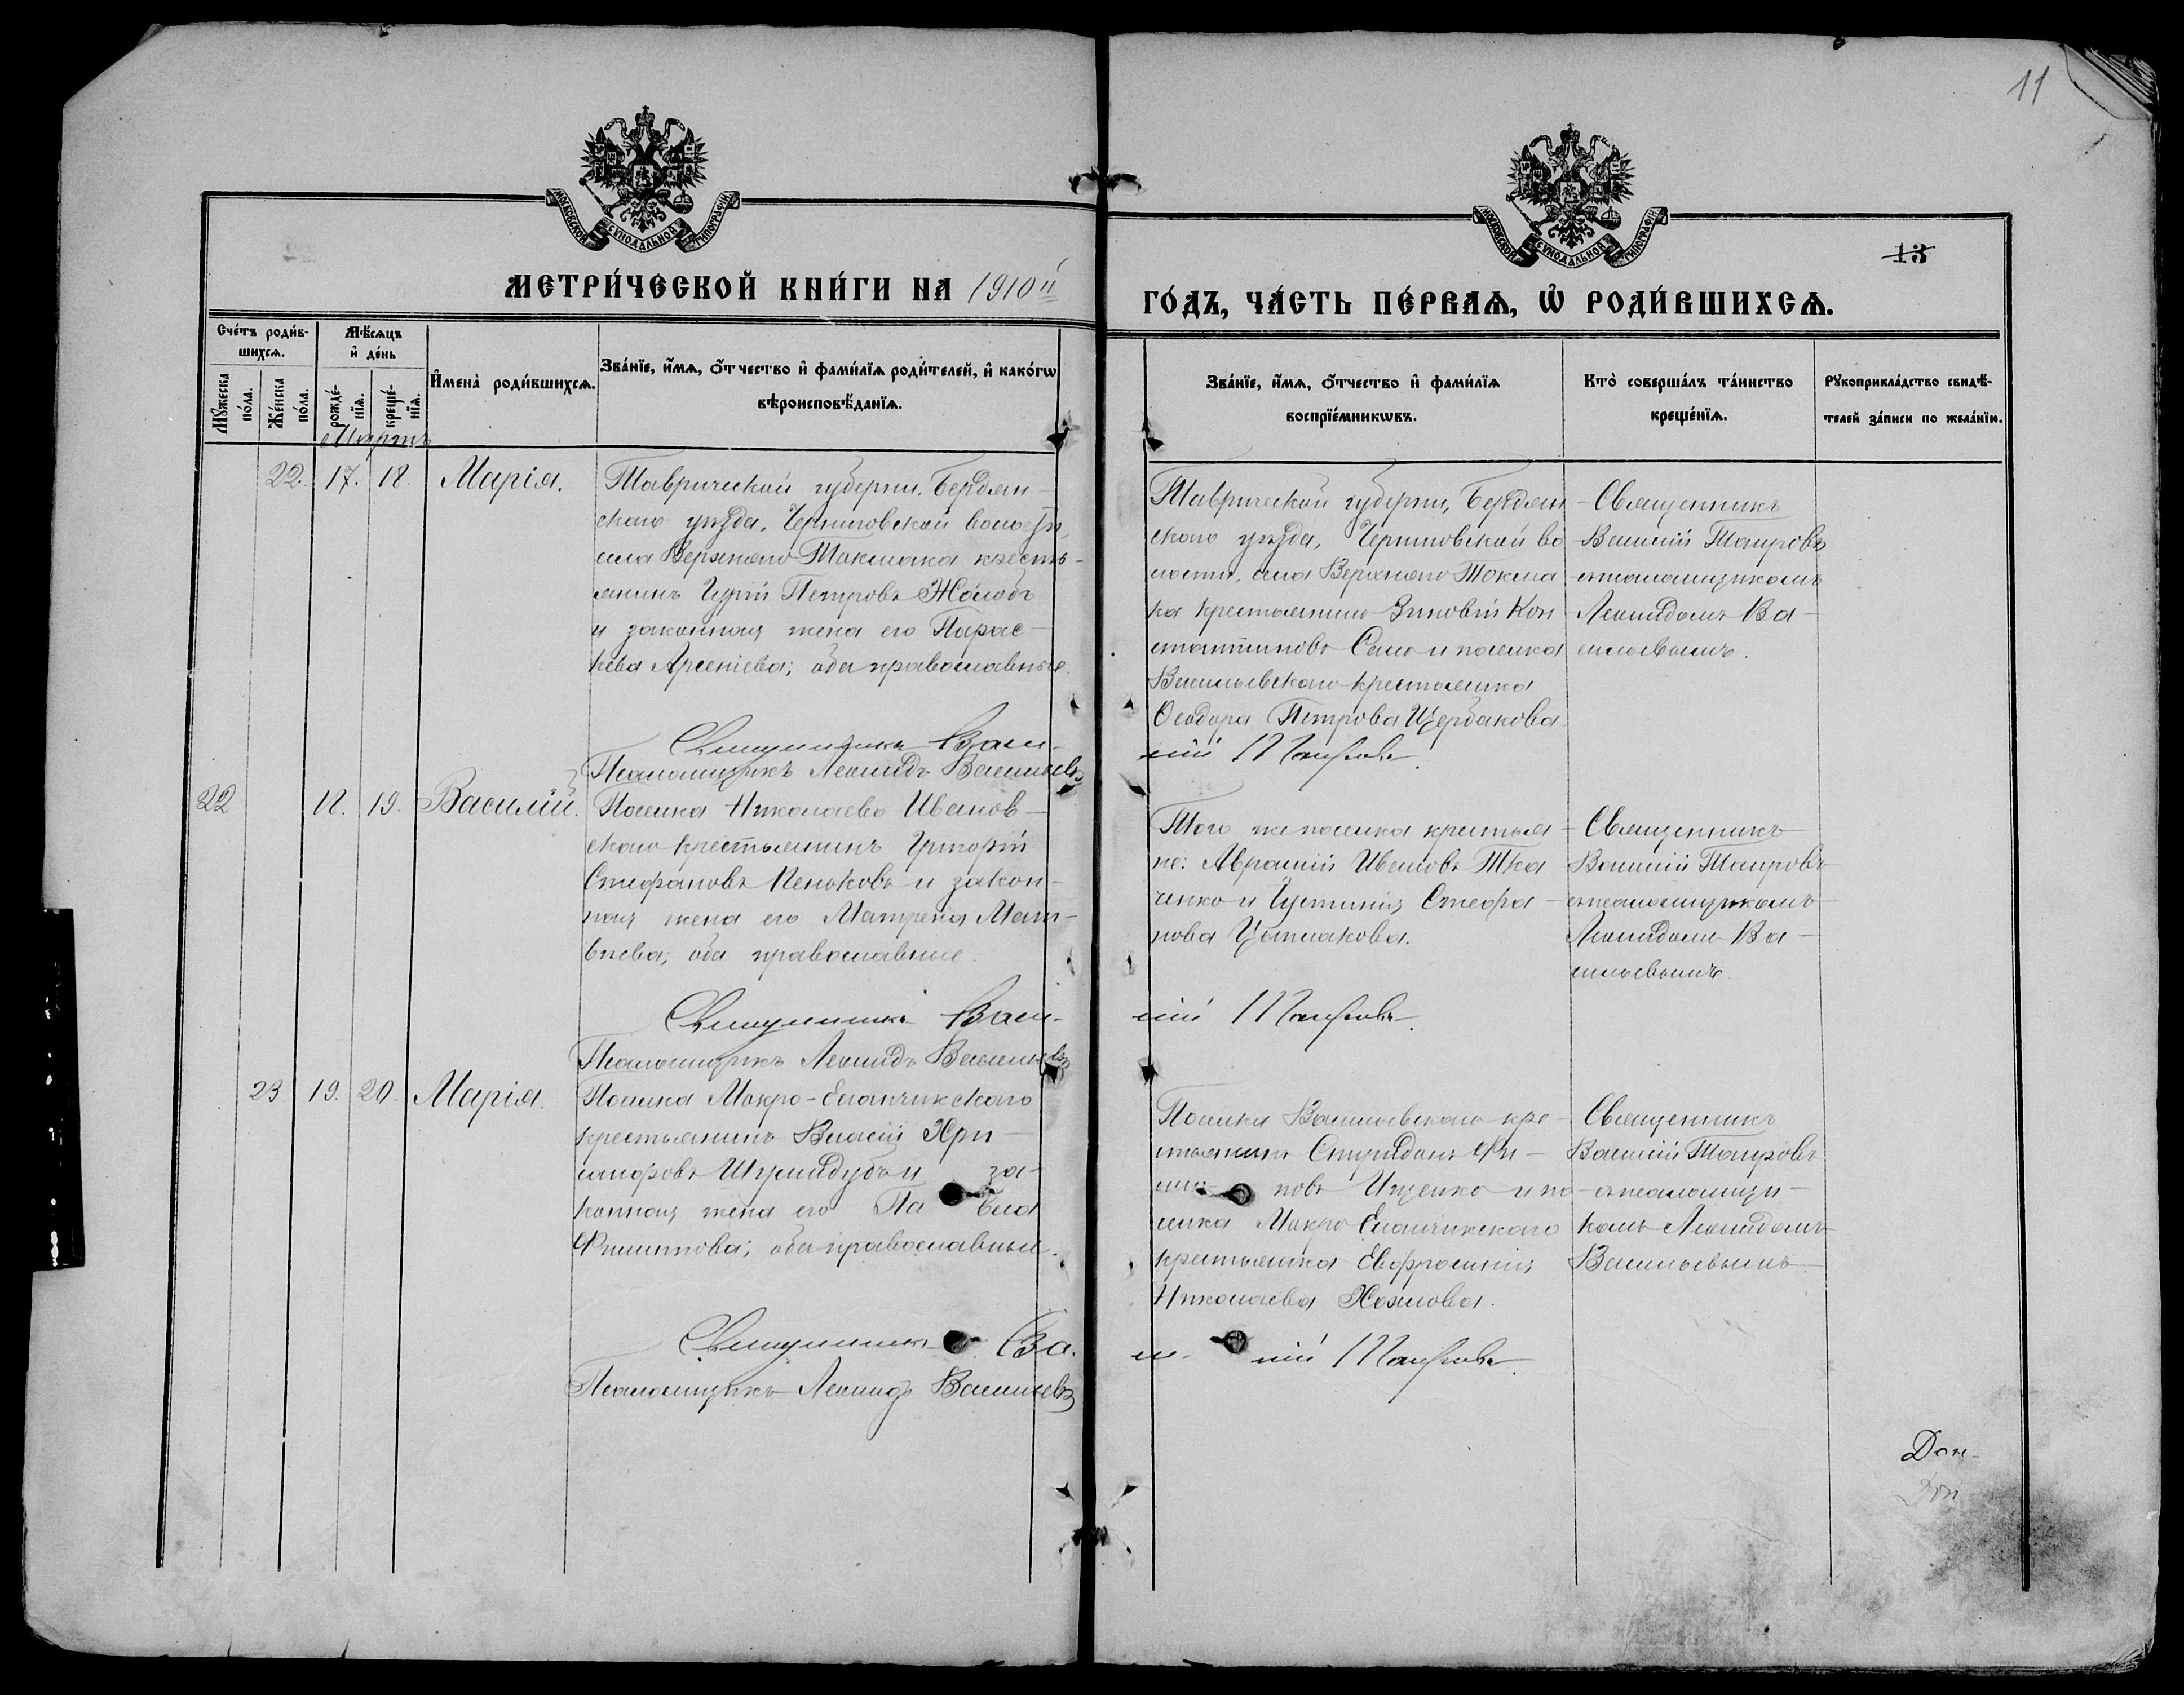 11
МОСКОВСКОЙ СѴНОДАЛЬНОЙ ТИПОГРАФІИ
МОСКОВСКОЙ СѴНОДАЛЬНОЙ ТИПОГРАФІИ
13
МЕТРИ́ЧЕСКОЙ КНИ́ГИ НА 1910й
ГО́ДЪ, ЧА́СТЬ ПЕ́РВАѦ, Ѡ҆ РОДИ́ВШИХСѦ.
Сче́тъ роди́в-
шихсѧ.
Мꙋ́жеска по́ла.
Же́нска по́ла.
Мѣ́сѧцъ
и҆ де́нь
рожде́-
нїѧ.
креще́-
нїѧ.
И҆мена̀ роди́вшихсѧ.
Зва́нїе, и҆́мѧ, ѻ҆́тчество и҆ фами́лїѧ роди́телей, и҆ како́гѡ
вѣроисповѣ́данїѧ.
Зва́нїе, и҆́мѧ, ѻ҆́тчество и҆ фами́лїѧ
воспрїе́мникѡвъ.
Кто̀ соверша́лъ та́инство
креще́нїѧ.
Рꙋкоприкла́дство свидѣ́-
телей за́писи по жела́нїю.
Мартъ
22. 17. 18. Марія.
Таврической губерніи, Бердян-
скаго уѣзда, Черниговской волости,
села Верхняго Токмака кресть-
янинъ Гурій Петровъ Жолобъ
и законная жена его Парас-
кева Арсеніева; оба православные.
Таврической губерніи, Бердян
скаго уѣзда, Черниговской во
лости, села Верхняго Токма
ка крестьянинъ Зиновій Кон
стантиновъ Сало и поселка
Васильевскаго крестьянка
Ѳеодора Петрова Щербакова
Священникъ
Василій Таировъ
съ псаломщикомъ
Леонидомъ Ва-
сильевымъ.
Священникъ Васи-
лій Таировъ.
Псаломщикъ Леонидъ Васильевъ
22 18. 19. Василій.
Поселка Николаево Иванов-
скаго крестьянинъ Григорій
Стефановъ Пеньковъ и закон-
ная жена его Матрена Мат-
ѳеева; оба православные.
Того же поселка крестья-
не: Авраамій Ивановъ Тка
ченко и Іустинія Стефа-
нова
Священникъ
Василій Таировъ
съ псаломщикомъ
Леонидомъ Ва-
сильевымъ
Священникъ Васи-
лій Таировъ.
Псаломщикъ Леонидъ Васильевъ
23 19. 20. Марія.
Поселка Мокро-Еланчикскаго
крестьянинъ Власій Хри-
санфовъ и за-
конная жена его
Филиппова; оба православные.
Поселка Васильевскаго кре-
стьянинъ Спиридонъ Фи-
повъ Ищенко и по-
селка Мокро Еланчикскаго
крестьянка Евфросинія
Николаева
Священникъ
Василій Таировъ
съ псаломщи-
комъ Леонидомъ
Васильевымъ
Священникъ Ва.
си- лій Таировъ.
Псаломщикъ Леонидъ Васильевъ
Дон-
Дон